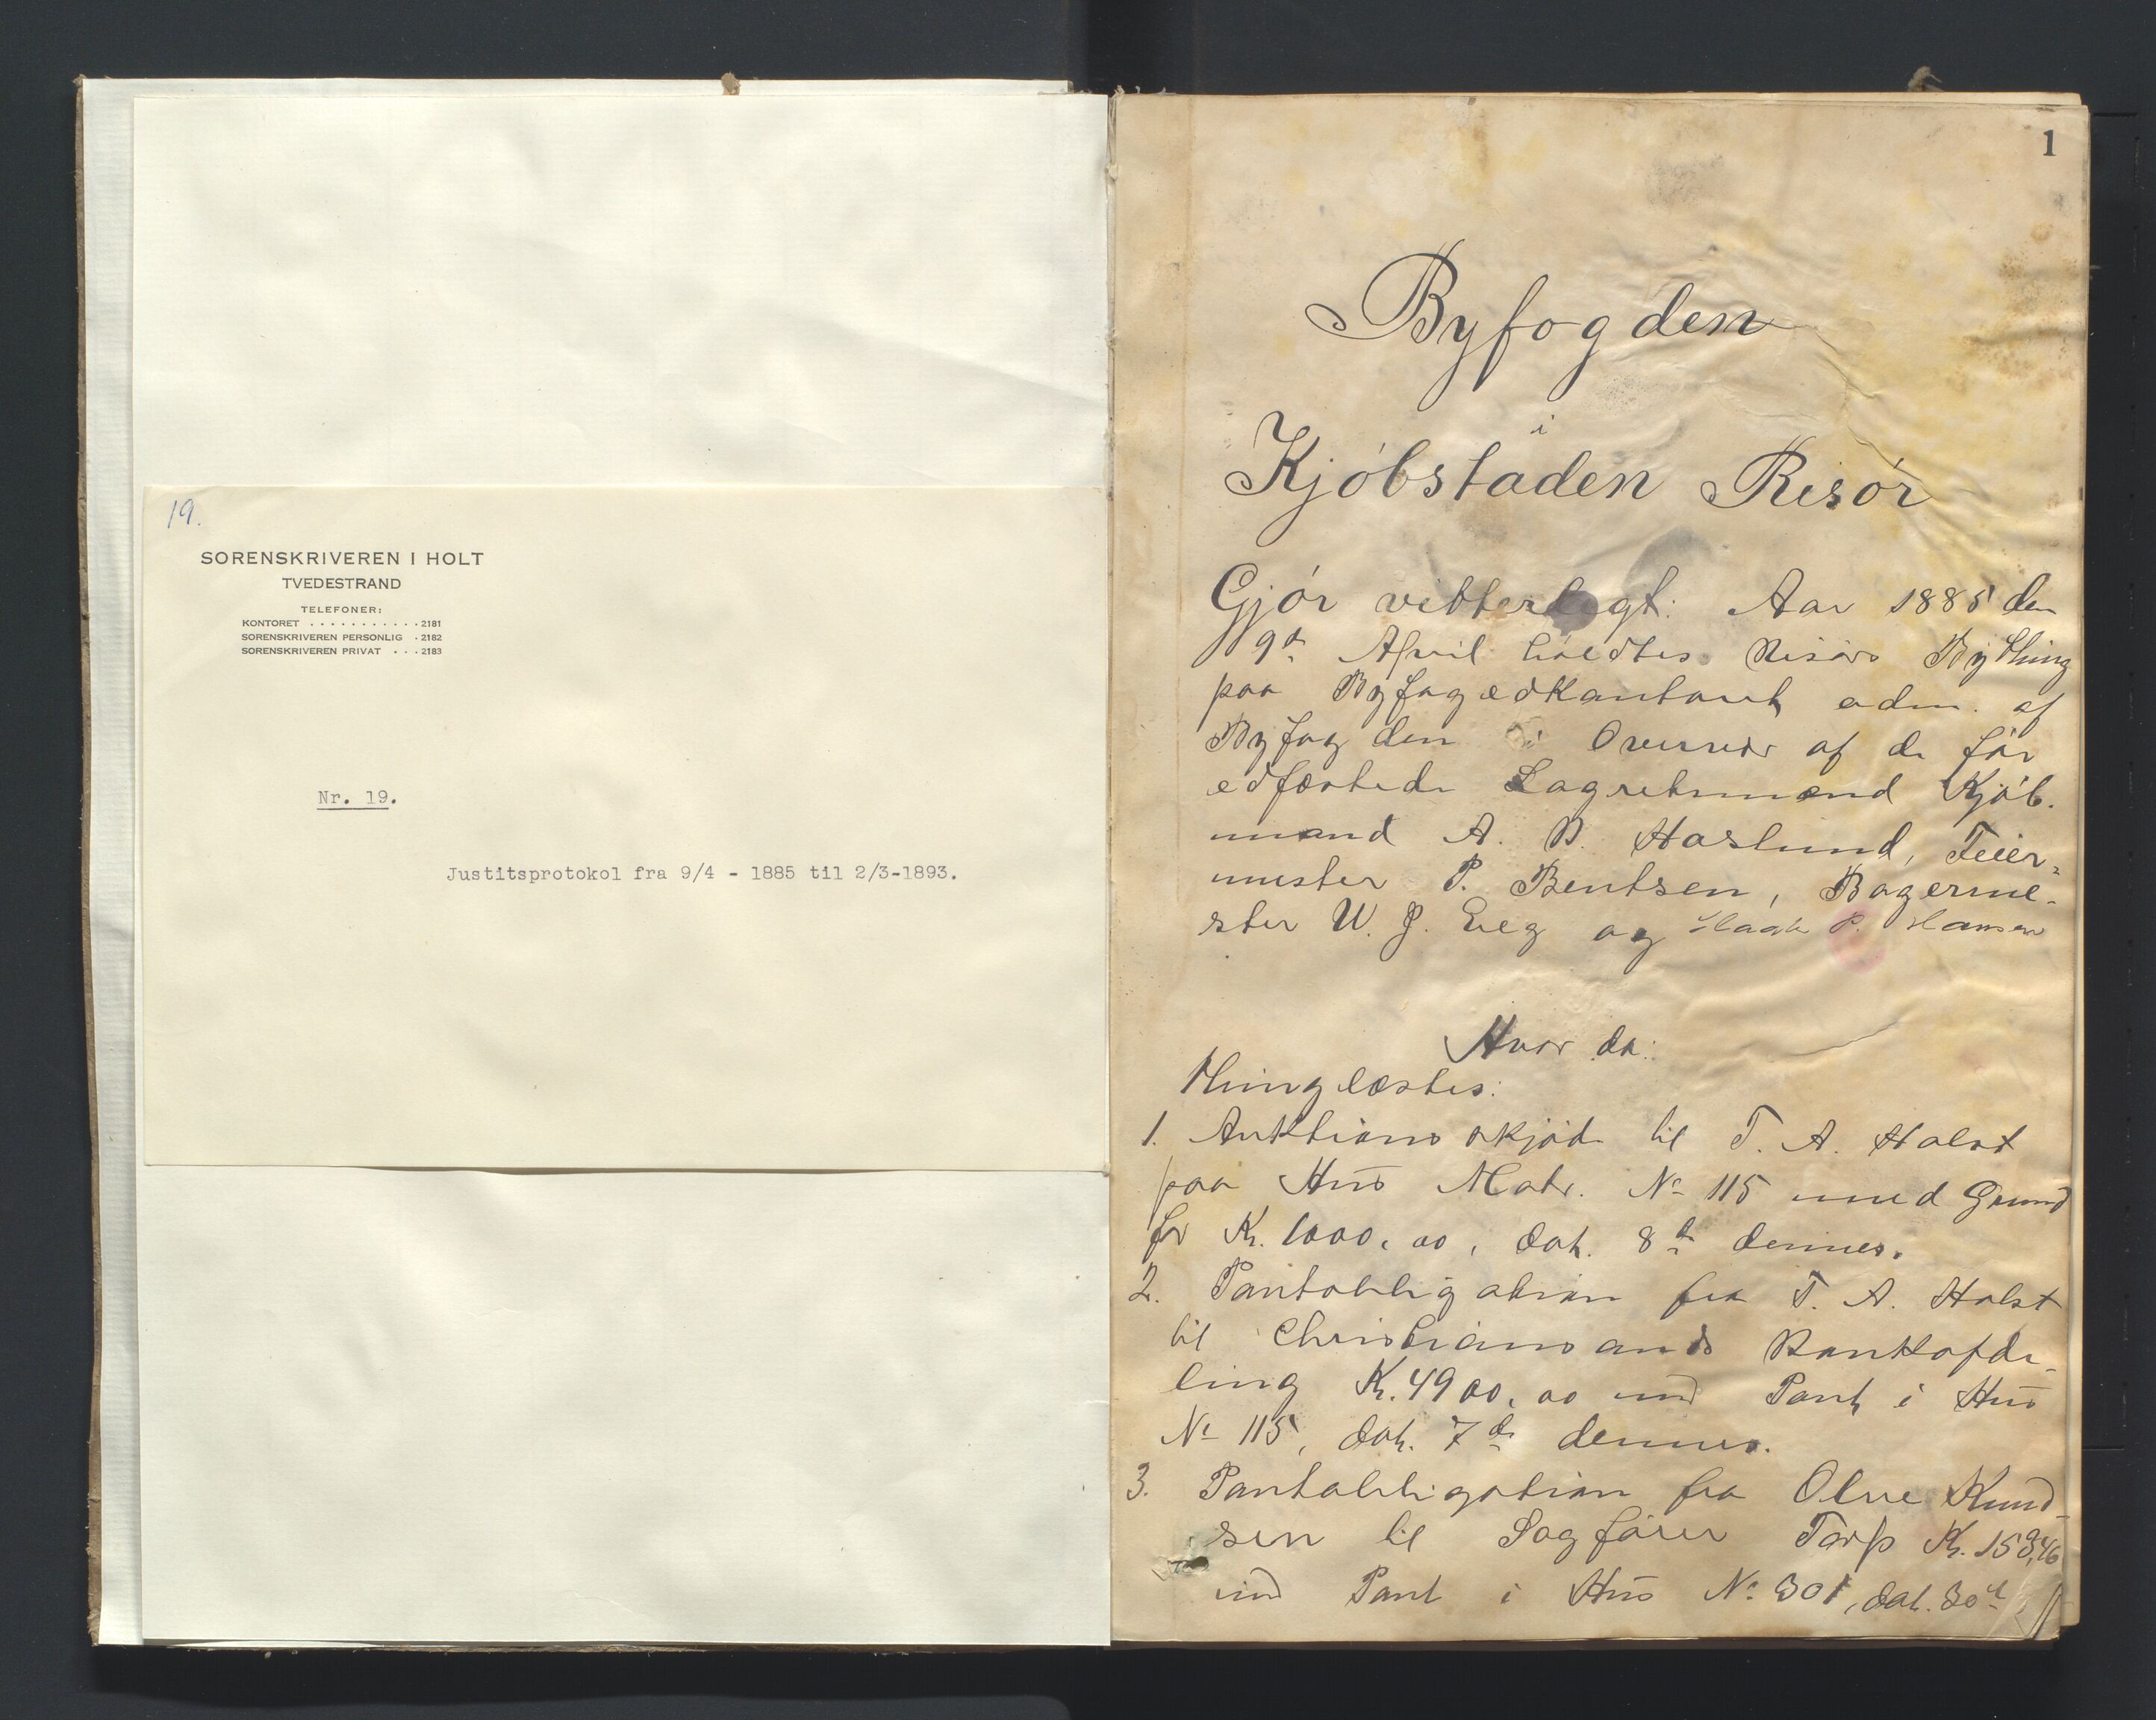 19.
SORENSKRIVEREN I HOLT
TVEDESTRAND
TELEFONER:
KONTORET . . . . . . . . . . . 2181
SORENSKRIVEREN PERSONLIG . 2182
SORENSKRIVEREN PRIVAT . . . 2183
Nr. 19.
Justitsprotokol fra 9/4 - 1885 til 2/3-1893.
1
Byfogden
i
Kjöbstaden Risör
Gjör vitterligt: Aar 1885 den
9de April holdtes Risörs Bything
paa Byfogedkontoret adm. af
Byfogden i Overvær af de för
edfæstede Lagretsmænd Kjöb-
mand A. B. Haslund, Feier-
mester P. Bentsen, Bagerme-
ster W. J. Eeg og P. Hansen
Hvor da:
Thinglæstes:
1. Auktionsskjöde til T. A. Holst
paa Hus Matr. No 115 med Grund
for Kr. 1000,00, dat. 8de dennes.
2. Pantobligation fra T. A. Holst
til Christiansands Bankafde-
ling Kr. 4900,00 med Pant i Hus
No 115, dat. 7de dennes.
3. Pantobligation fra Olene Knud-
sen til Sagförer Tarp Kr.
med Pant i Hus No 301, dat. 30te